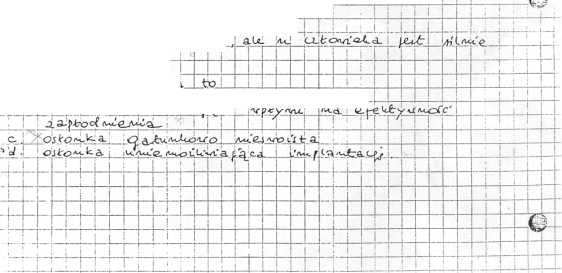 , ale u człowieka jest silnie
to
wpływu na efektywność
zapłodnienia
c. osłonka gatunkowo nieswoista
d. osłonka uniemożliwiająca implantację.